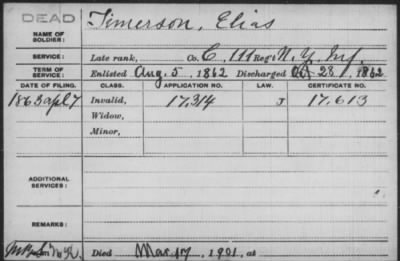 DEAD
NAME OF SOLDIER: Timerson, Elias
SERVICE: Late rank, Co. C, 111 Reg't N.Y. Inf.
TERM OF SERVICE: Enlisted Aug. 5, 1862 Discharged Oct 28, 1862
DATE OF FILING. CLASS. APPLICATION NO. LAW. CERTIFICATE NO.
1863 apl 7 Invalid, 17,314 J 17,613
Widow,
Minor,
ADDITIONAL SERVICES:
REMARKS:
Died Mar. 17, 1901, at